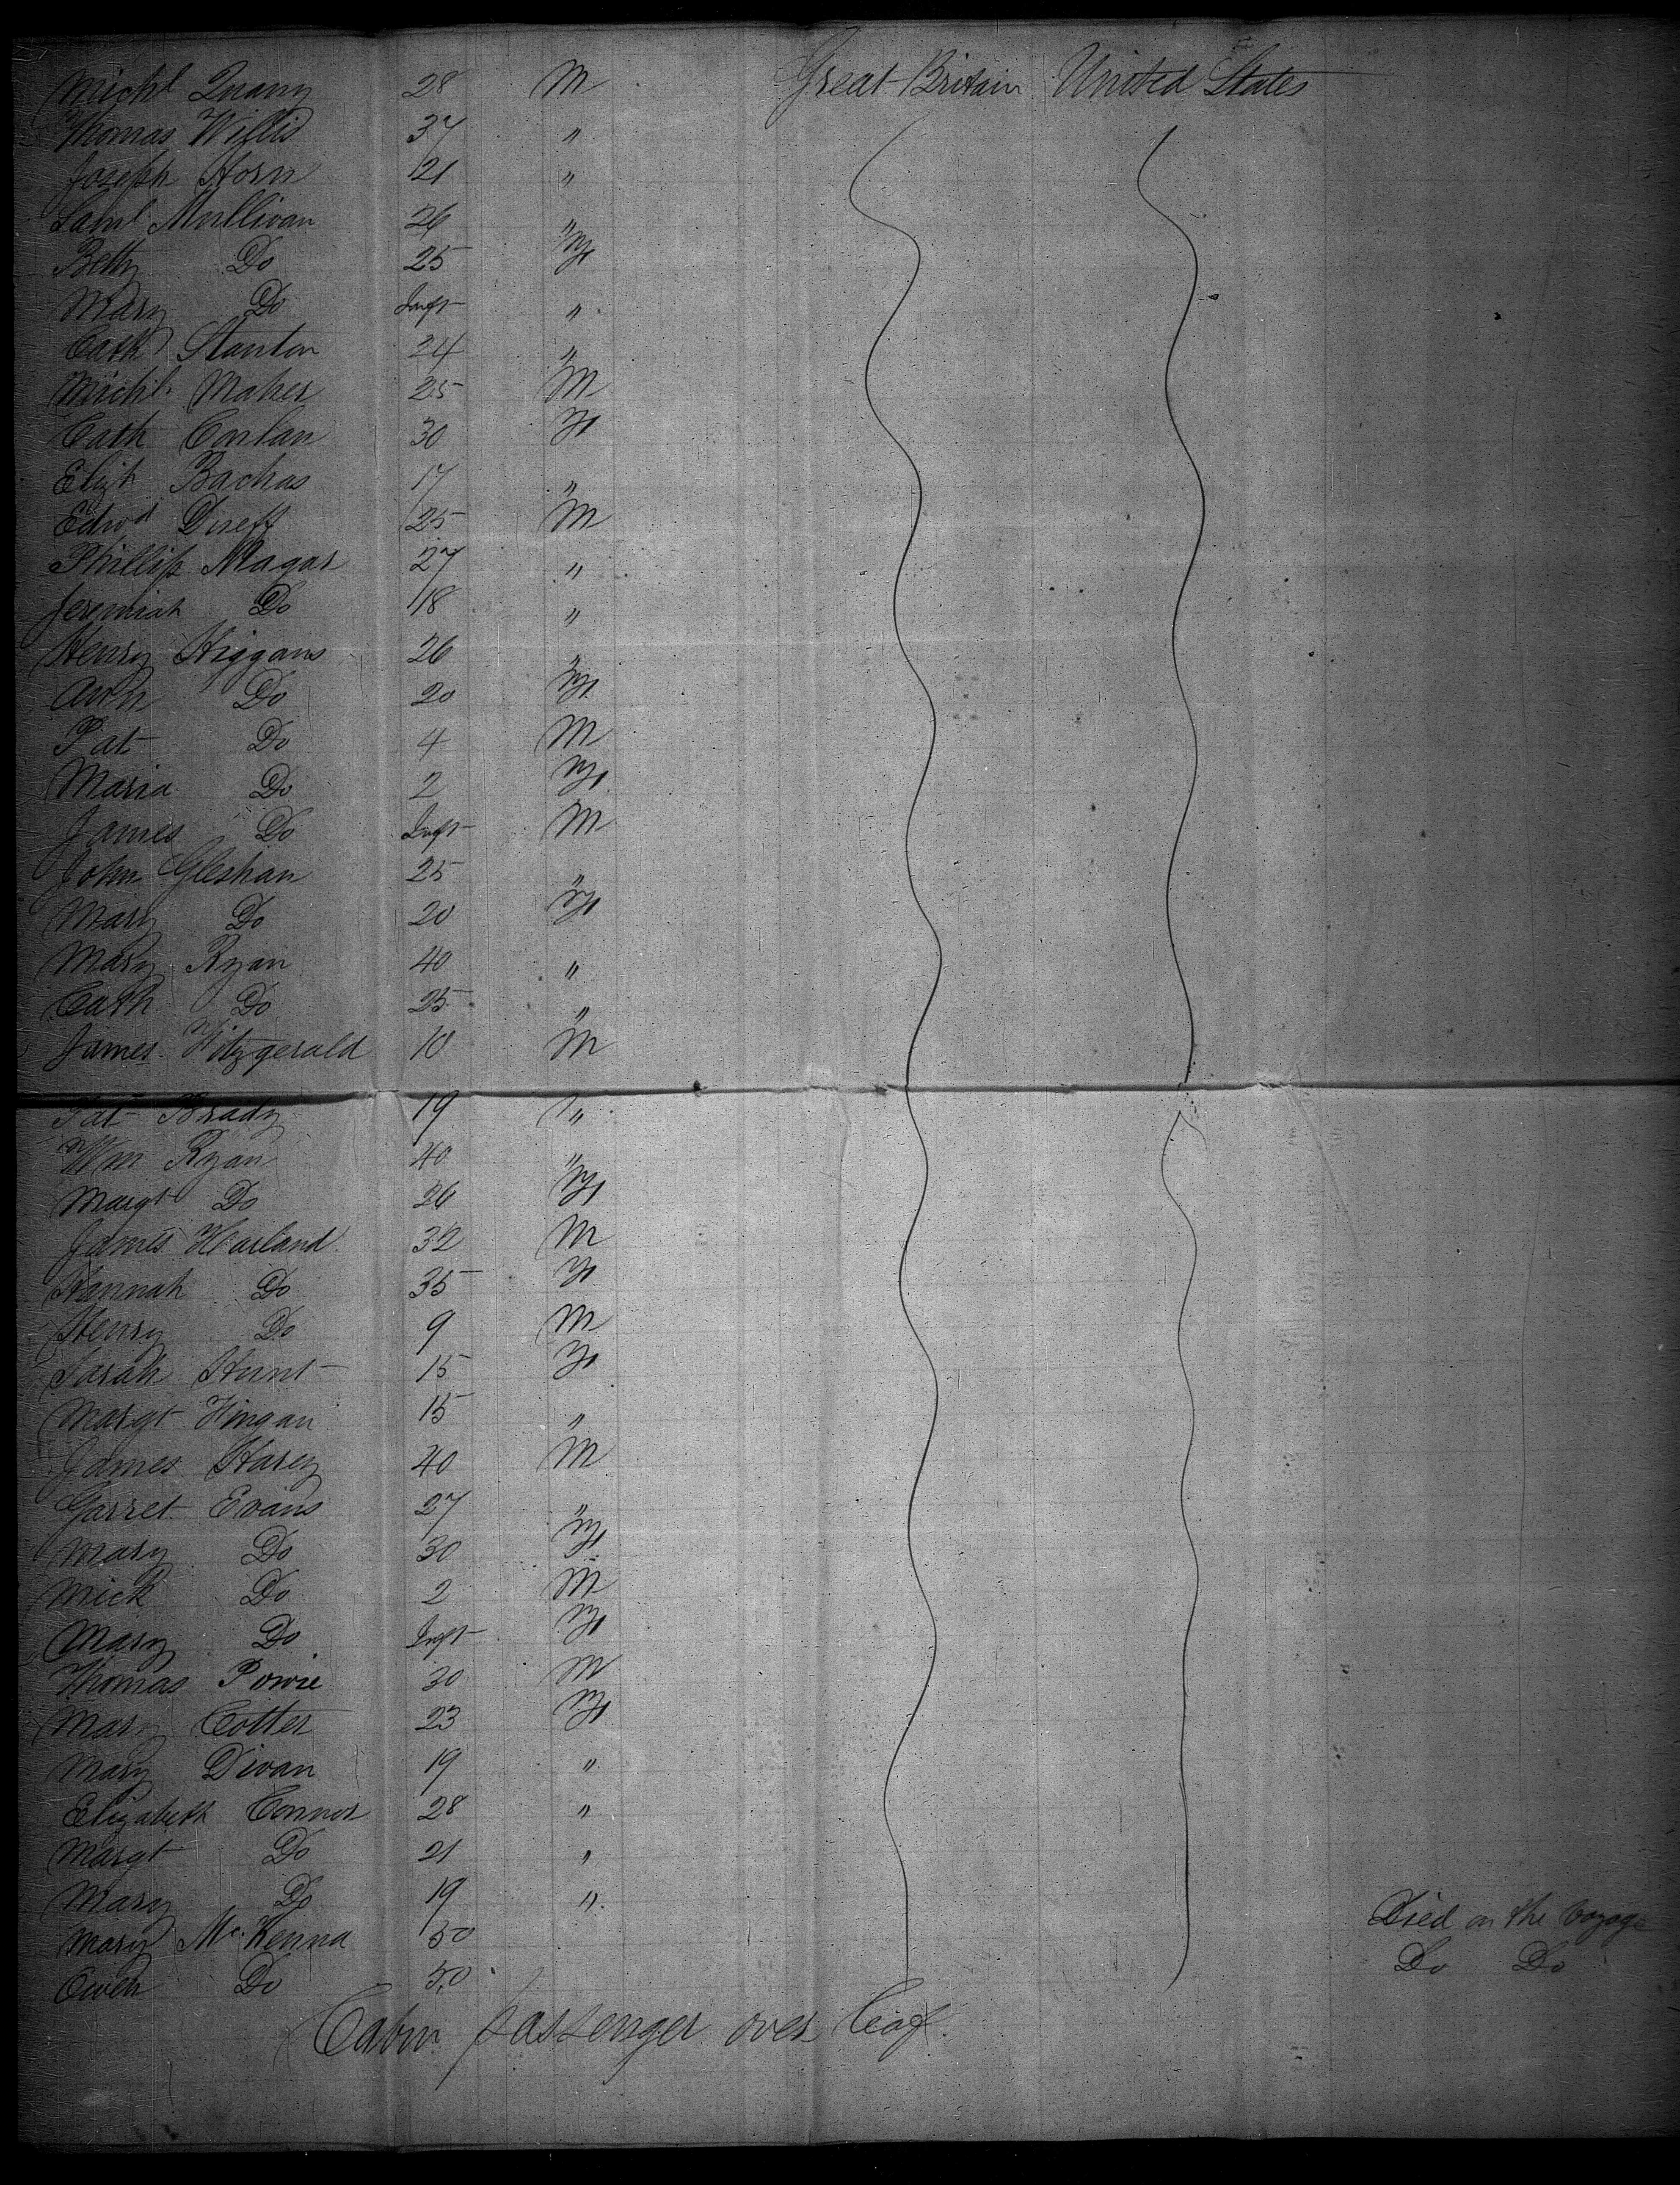 Michl Quany 28 M Great Britain United States
Thomas Willis 37 "
Joseph Horn 21 "
Saml Mullivan 26 "
Betty Do 25 F
Mary Do Inft "
Cath Stanton 24 "
Michl. Maher 25 M
Cath Conlan 30 F
Elizh Bachas 17 "
Edwd Duff 25 M
Phillip Magar 27 "
Jeremiah Do 18 "
Henry Higgans 26 "
Ann Do 20 F
Pat Do 4 M
Maria Do 2 F
James Do Inft M
John Gleshan 25 "
Mary Do 20 F
Mary Ryan 40 "
Cath Do 25 "
James Fitzgerald 10 M
Pat Brady 19 "
Wm Ryan 40 "
Margt Do 26 F
James Harland 32 M
Hannah Do 35 F
Henry Do 9 M
Sarah Hunt 15 F
Margt Fingan 15 "
James Harey 40 M
Garret Evans 27 "
Mary Do 30 F
Mick Do 2 M
Mary Do Inft F
Thomas Powie 30 M
Mary Cotter 23 F
Mary Divan 19 "
Elizabeth Connor 28 "
Margt Do 21 "
Mary Do 19 "
Mary Mc Kenna 50 Died on the Voyage
Owen Do 50 Do Do
Cabin passenger over leaf